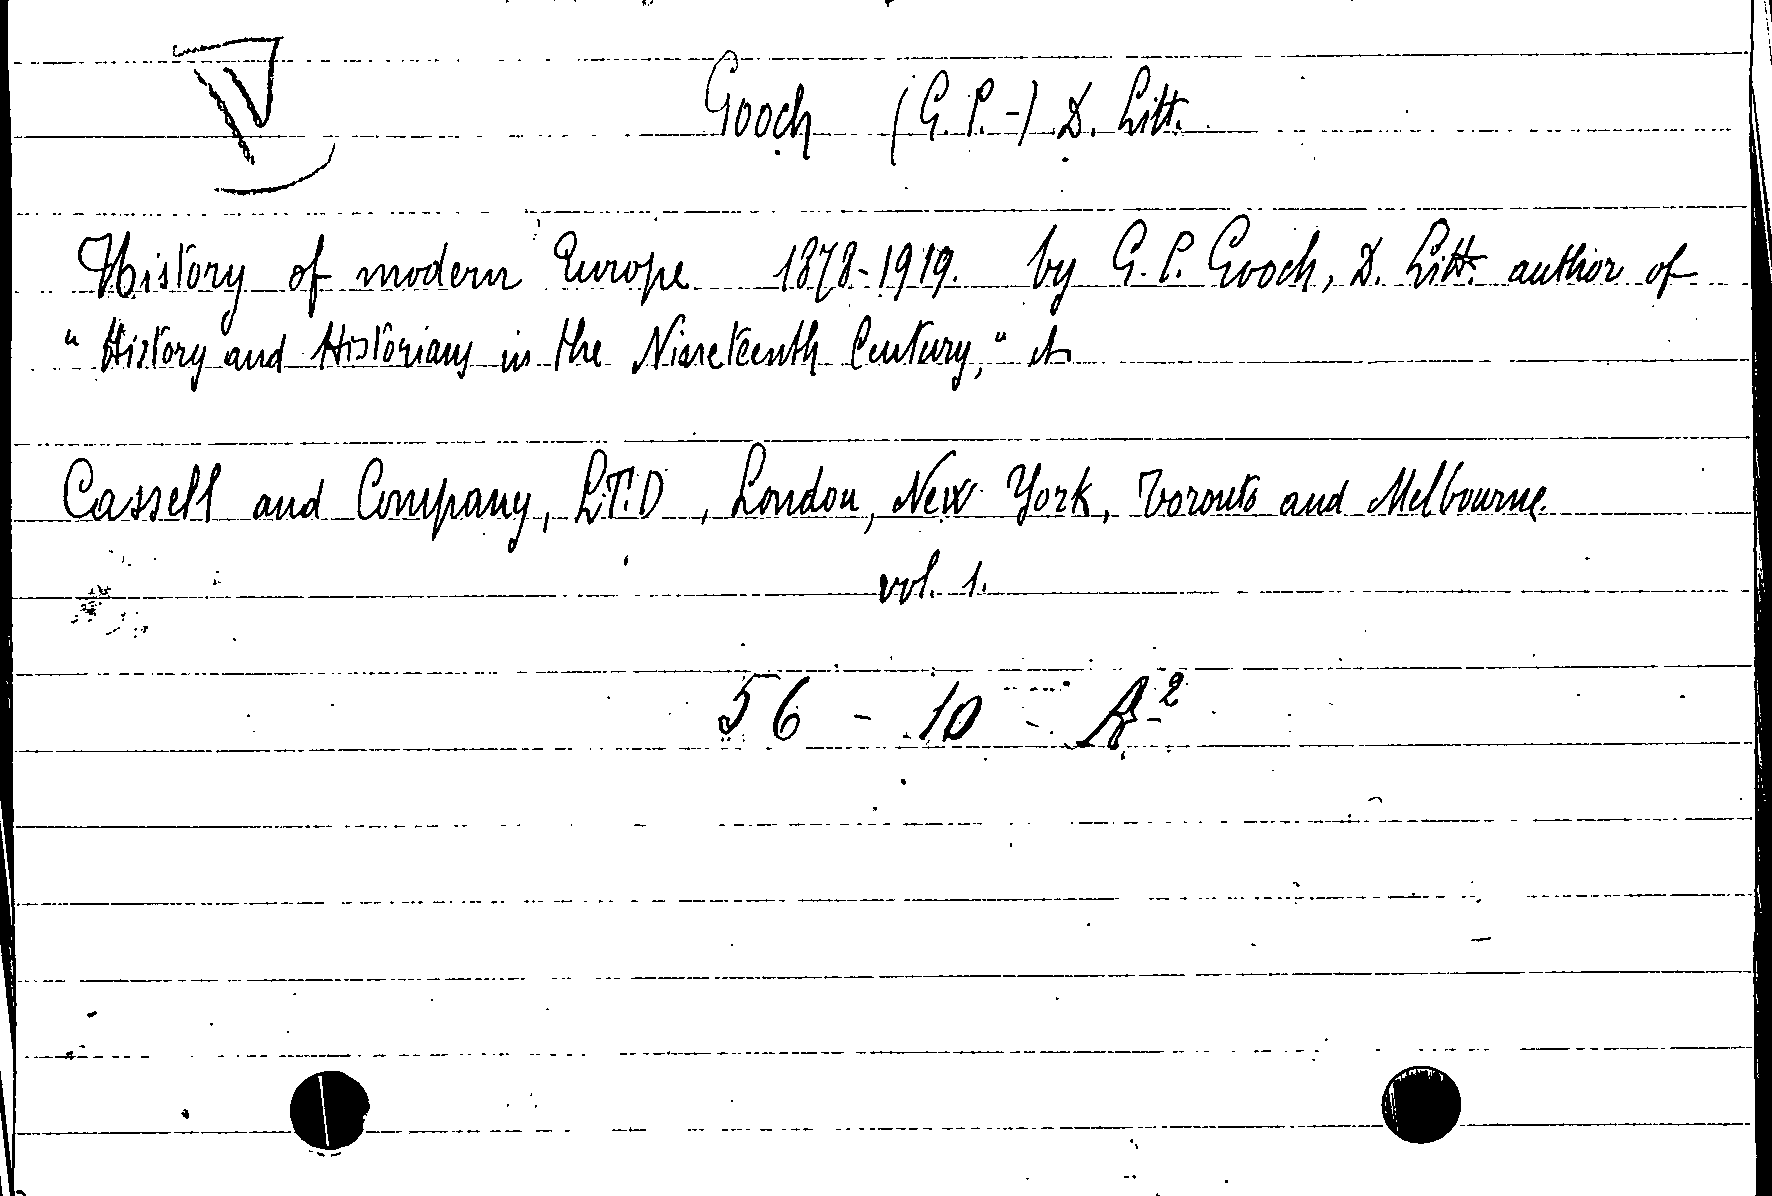 IV
Gooch (G. P.-) D. Litt.
History of modern Europe 1878-1919. by G. P. Gooch, D. Litt. author of
"History and Historians in the Nineteenth Century," etc
Cassell and Company, LT.D, London, New York, Toronto and Melbourne.
vol. 1.
56 - 10 - A-2